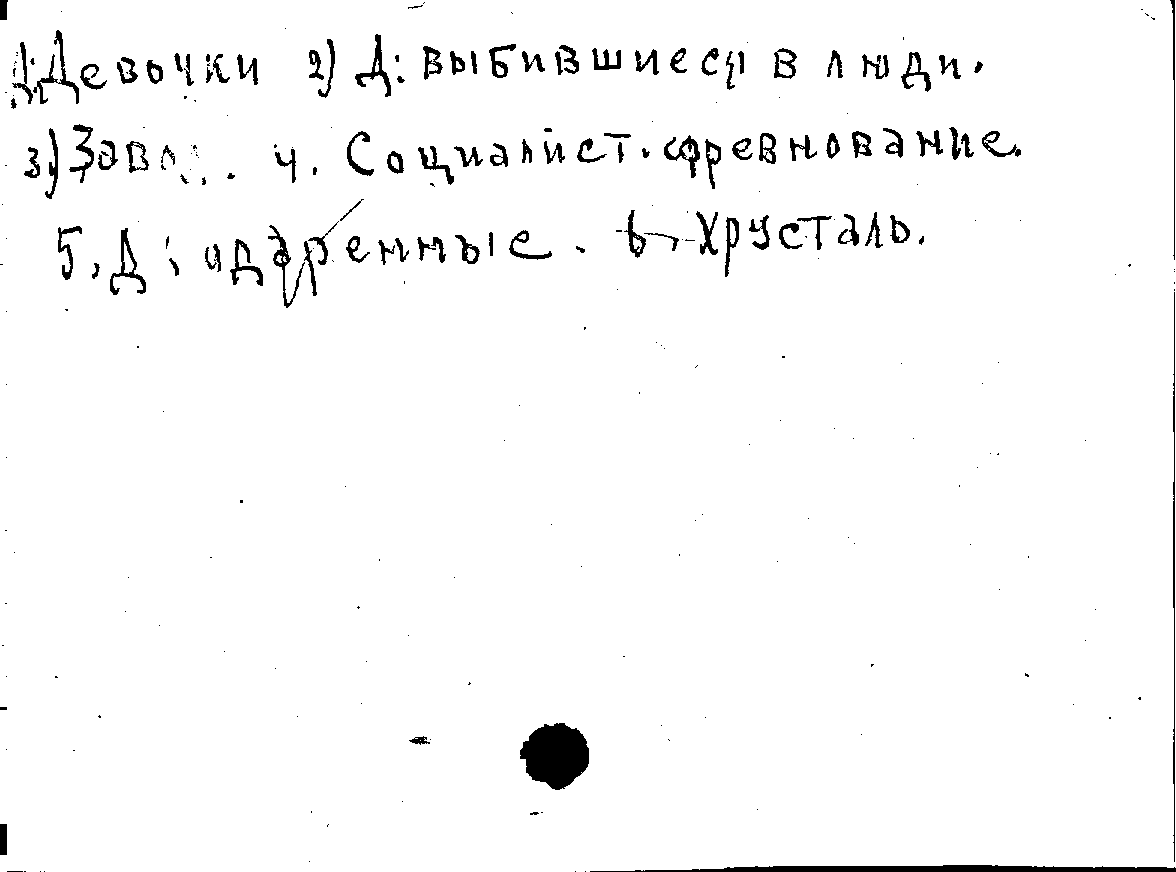 Девочки 2) Д: выбившиеся в люди.
3) 4. Социалист. соревнование.
5. Д: одаренные. 6. Хрусталь.